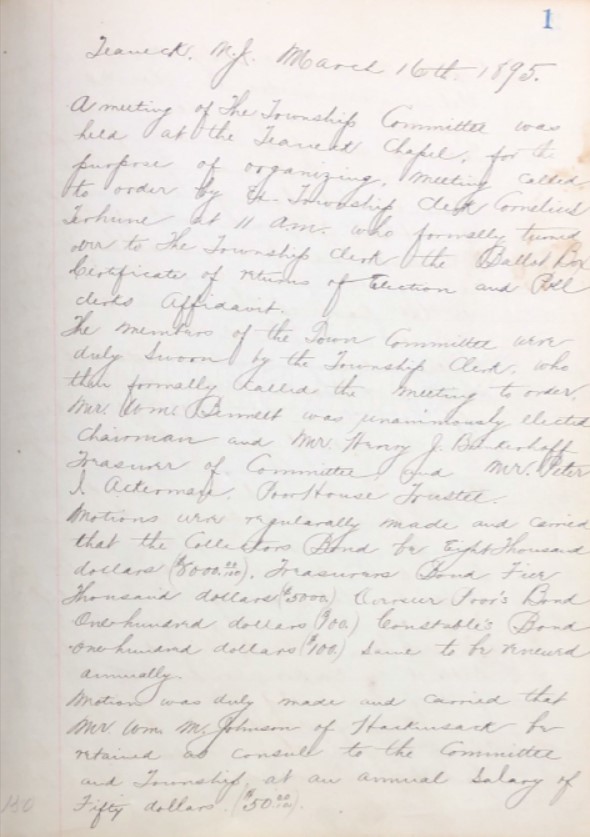 1
Teaneck. N.J. March 16th. 1895.
A meeting of The Township Committee was
held at the Teaneck Chapel, for the
purpose of organizing, Meeting called
to order by Ex. Township Clerk Cornelius
Terhune at 11 A.M. who formally turned
over to The Township Clerk the Ballot Box
Certificate of returns of Election and Poll
clerks Affidavit.
The members of the Town Committee were
duly Sworn by the Township Clerk, who
then formally called the meeting to order,
Mr. Wm. Bennett was unanimously elected
Chairman and Mr. Henry J. Brinkerhoff
Treasurer of Committee, and Mr. Peter
I. Ackerman, Poor House Trustee.
Motions were regularally made and carried
that the Collectors Bond be Eight Thousand
dollars ($8000.00/100). Treasurers Bond Five
Thousand dollars ($5000.) Overseer Poor's Bond
One hundred dollars ($100.) Constable's Bond
one hundred dollars ($100.) Same to be renewed
annually.
Motion was duly made and carried that
Mr Wm. M. Johnson of Hackensack be
retained as consul to the Committee
and Township, at an annual Salary of
Fifty dollars. ($50.00/100).